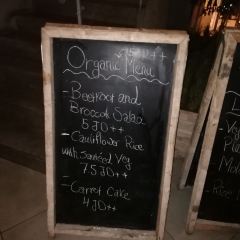 Organic Menu
- Beetroot and
Broccoli Salad
5 JD++
- Cauliflower Rice
with Sautéed Veg
7.5 JD++
- Carrot Cake
4 JD++